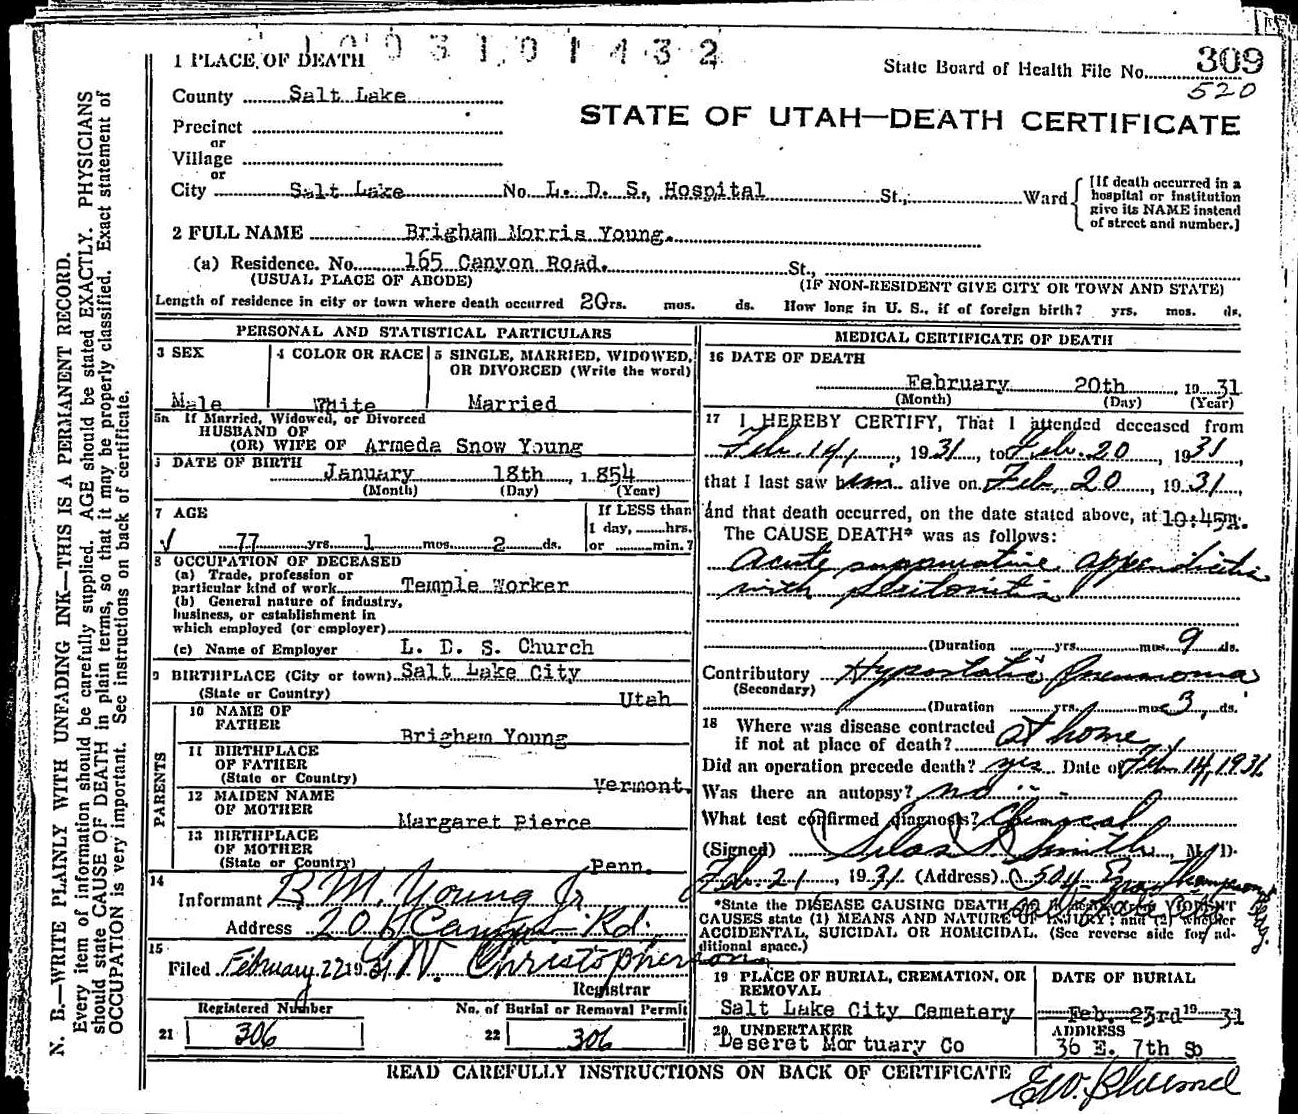 1 0 0 3 1 0 1 4 3 2
1 PLACE OF DEATH
State Board of Health File No. 309
520
County Salt Lake
STATE OF UTAH—DEATH CERTIFICATE
Precinct
or
Village
or
City Salt Lake No. L. D. S. Hospital St., Ward
[If death occurred in a hospital or institution give its NAME instead of street and number.]
2 FULL NAME Brigham Morris Young.
(a) Residence. No. 165 Canyon Road. St.,
(USUAL PLACE OF ABODE) (IF NON-RESIDENT GIVE CITY OR TOWN AND STATE)
Length of residence in city or town where death occurred 20rs. mos. ds. How long in U. S., if of foreign birth? yrs. mos. ds.
PERSONAL AND STATISTICAL PARTICULARS
3 SEX
Male
4 COLOR OR RACE
White
5 SINGLE, MARRIED, WIDOWED,
OR DIVORCED (Write the word)
Married
5a If Married, Widowed, or Divorced
HUSBAND OF
(OR) WIFE OF Armeda Snow Young
DATE OF BIRTH
January 18th, 1854
(Month) (Day) (Year)
7 AGE
77 yrs. 1 mos. 2 ds.
If LESS than
1 day, hrs.
or min.?
8 OCCUPATION OF DECEASED
(a) Trade, profession or
particular kind of work Temple Worker
(b) General nature of industry,
business, or establishment in
which employed (or employer)
(c) Name of Employer L. D. S. Church
9 BIRTHPLACE (City or town) Salt Lake City
(State or Country) Utah
PARENTS
10 NAME OF
FATHER Brigham Young
11 BIRTHPLACE
OF FATHER
(State or Country) Vermont.
12 MAIDEN NAME
OF MOTHER Margaret Pierce
13 BIRTHPLACE
OF MOTHER
(State or Country) Penn.
14
Informant B M. Young Jr
Address 206 Canyon Rd.
15
Filed February 22 1931 W. Christopherson
Registrar
Registered Number
21 306
No. of Burial or Removal Permit
22 306
MEDICAL CERTIFICATE OF DEATH
16 DATE OF DEATH
February 20th, 1931
(Month) (Day) (Year)
17 I HEREBY CERTIFY, That I attended deceased from
Feb. 14, 1931, to Feb. 20, 1931,
that I last saw him alive on Feb. 20, 1931,
and that death occurred, on the date stated above, at 10:45m.
The CAUSE DEATH* was as follows:
Acute suppurative appendicitis
with peritonitis
(Duration yrs. mos. 9 ds.
Contributory Hypostatic Pneumonia
(Secondary)
(Duration yrs. mos. 3, ds.
18 Where was disease contracted
if not at place of death? at home
Did an operation precede death? yes Date of Feb. 14, 1931
Was there an autopsy? no
What test confirmed diagnosis? Chemical
(Signed) Silas S Smith, M. D.
Feb. 21, 1931. (Address) 504
*State the DISEASE CAUSING DEATH, or in deaths from VIOLENT
CAUSES state (1) MEANS AND NATURE OF INJURY: and (2) whether
ACCIDENTAL, SUICIDAL OR HOMICIDAL. (See reverse side for ad-
ditional space.)
19 PLACE OF BURIAL, CREMATION, OR
REMOVAL
Salt Lake City Cemetery
DATE OF BURIAL
Feb. 23rd 19 31
20. UNDERTAKER
Deseret Mortuary Co
ADDRESS
36 E. 7th So
READ CAREFULLY INSTRUCTIONS ON BACK OF CERTIFICATE
N. B.—WRITE PLAINLY WITH UNFADING INK—THIS IS A PERMANENT RECORD.
Every item of information should be carefully supplied. AGE should be stated EXACTLY. PHYSICIANS
should state CAUSE OF DEATH in plain terms, so that it may be properly classified. Exact statement of
OCCUPATION is very important. See instructions on back of certificate.